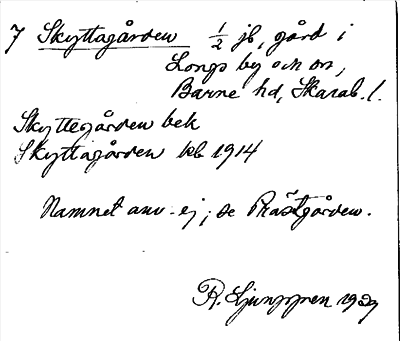 7 Skyttagården ½ jb, gård i
Longs by och sn,
Barne hd, Skarab. l.
Skyttegården bek
Skyttagården kb 1914
Namnet anv. ej; se Prästgården.
R. Ljunggren 1929